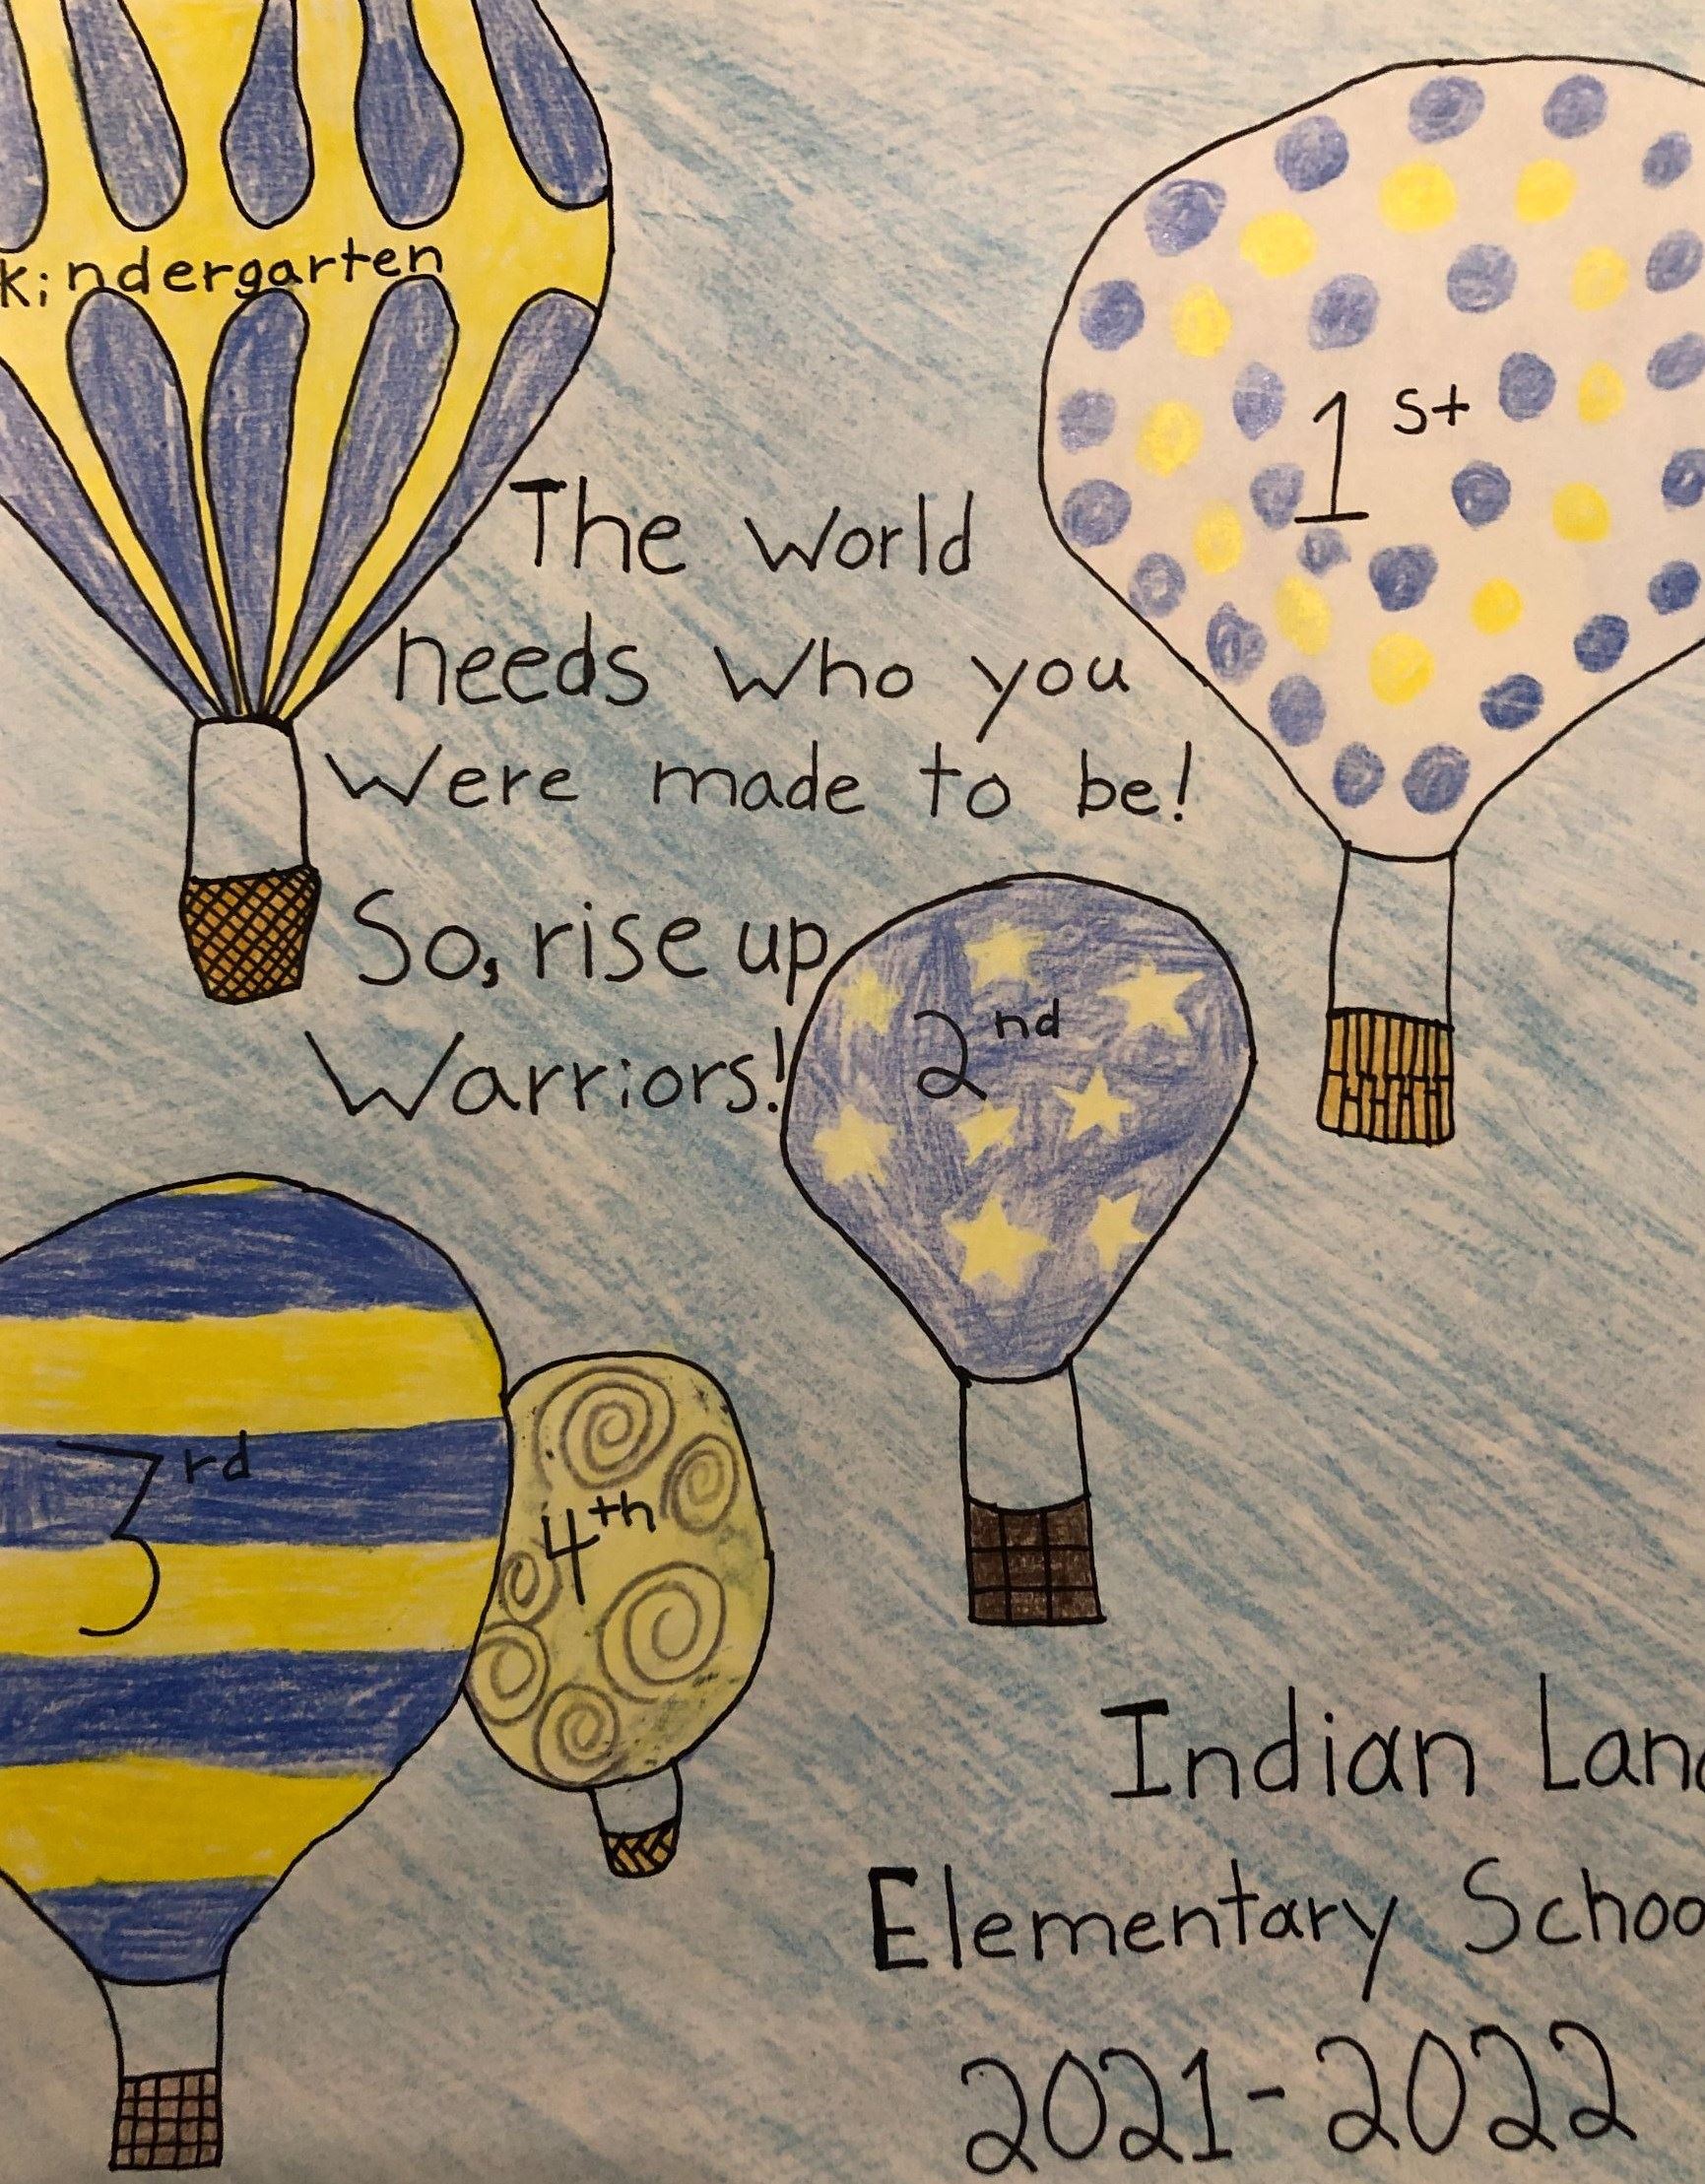 kindergarten
1st
The world
needs who you
were made to be!
So, rise up
Warriors!
2nd
3rd
4th
Indian Lan
Elementary Schoo
2021-2022